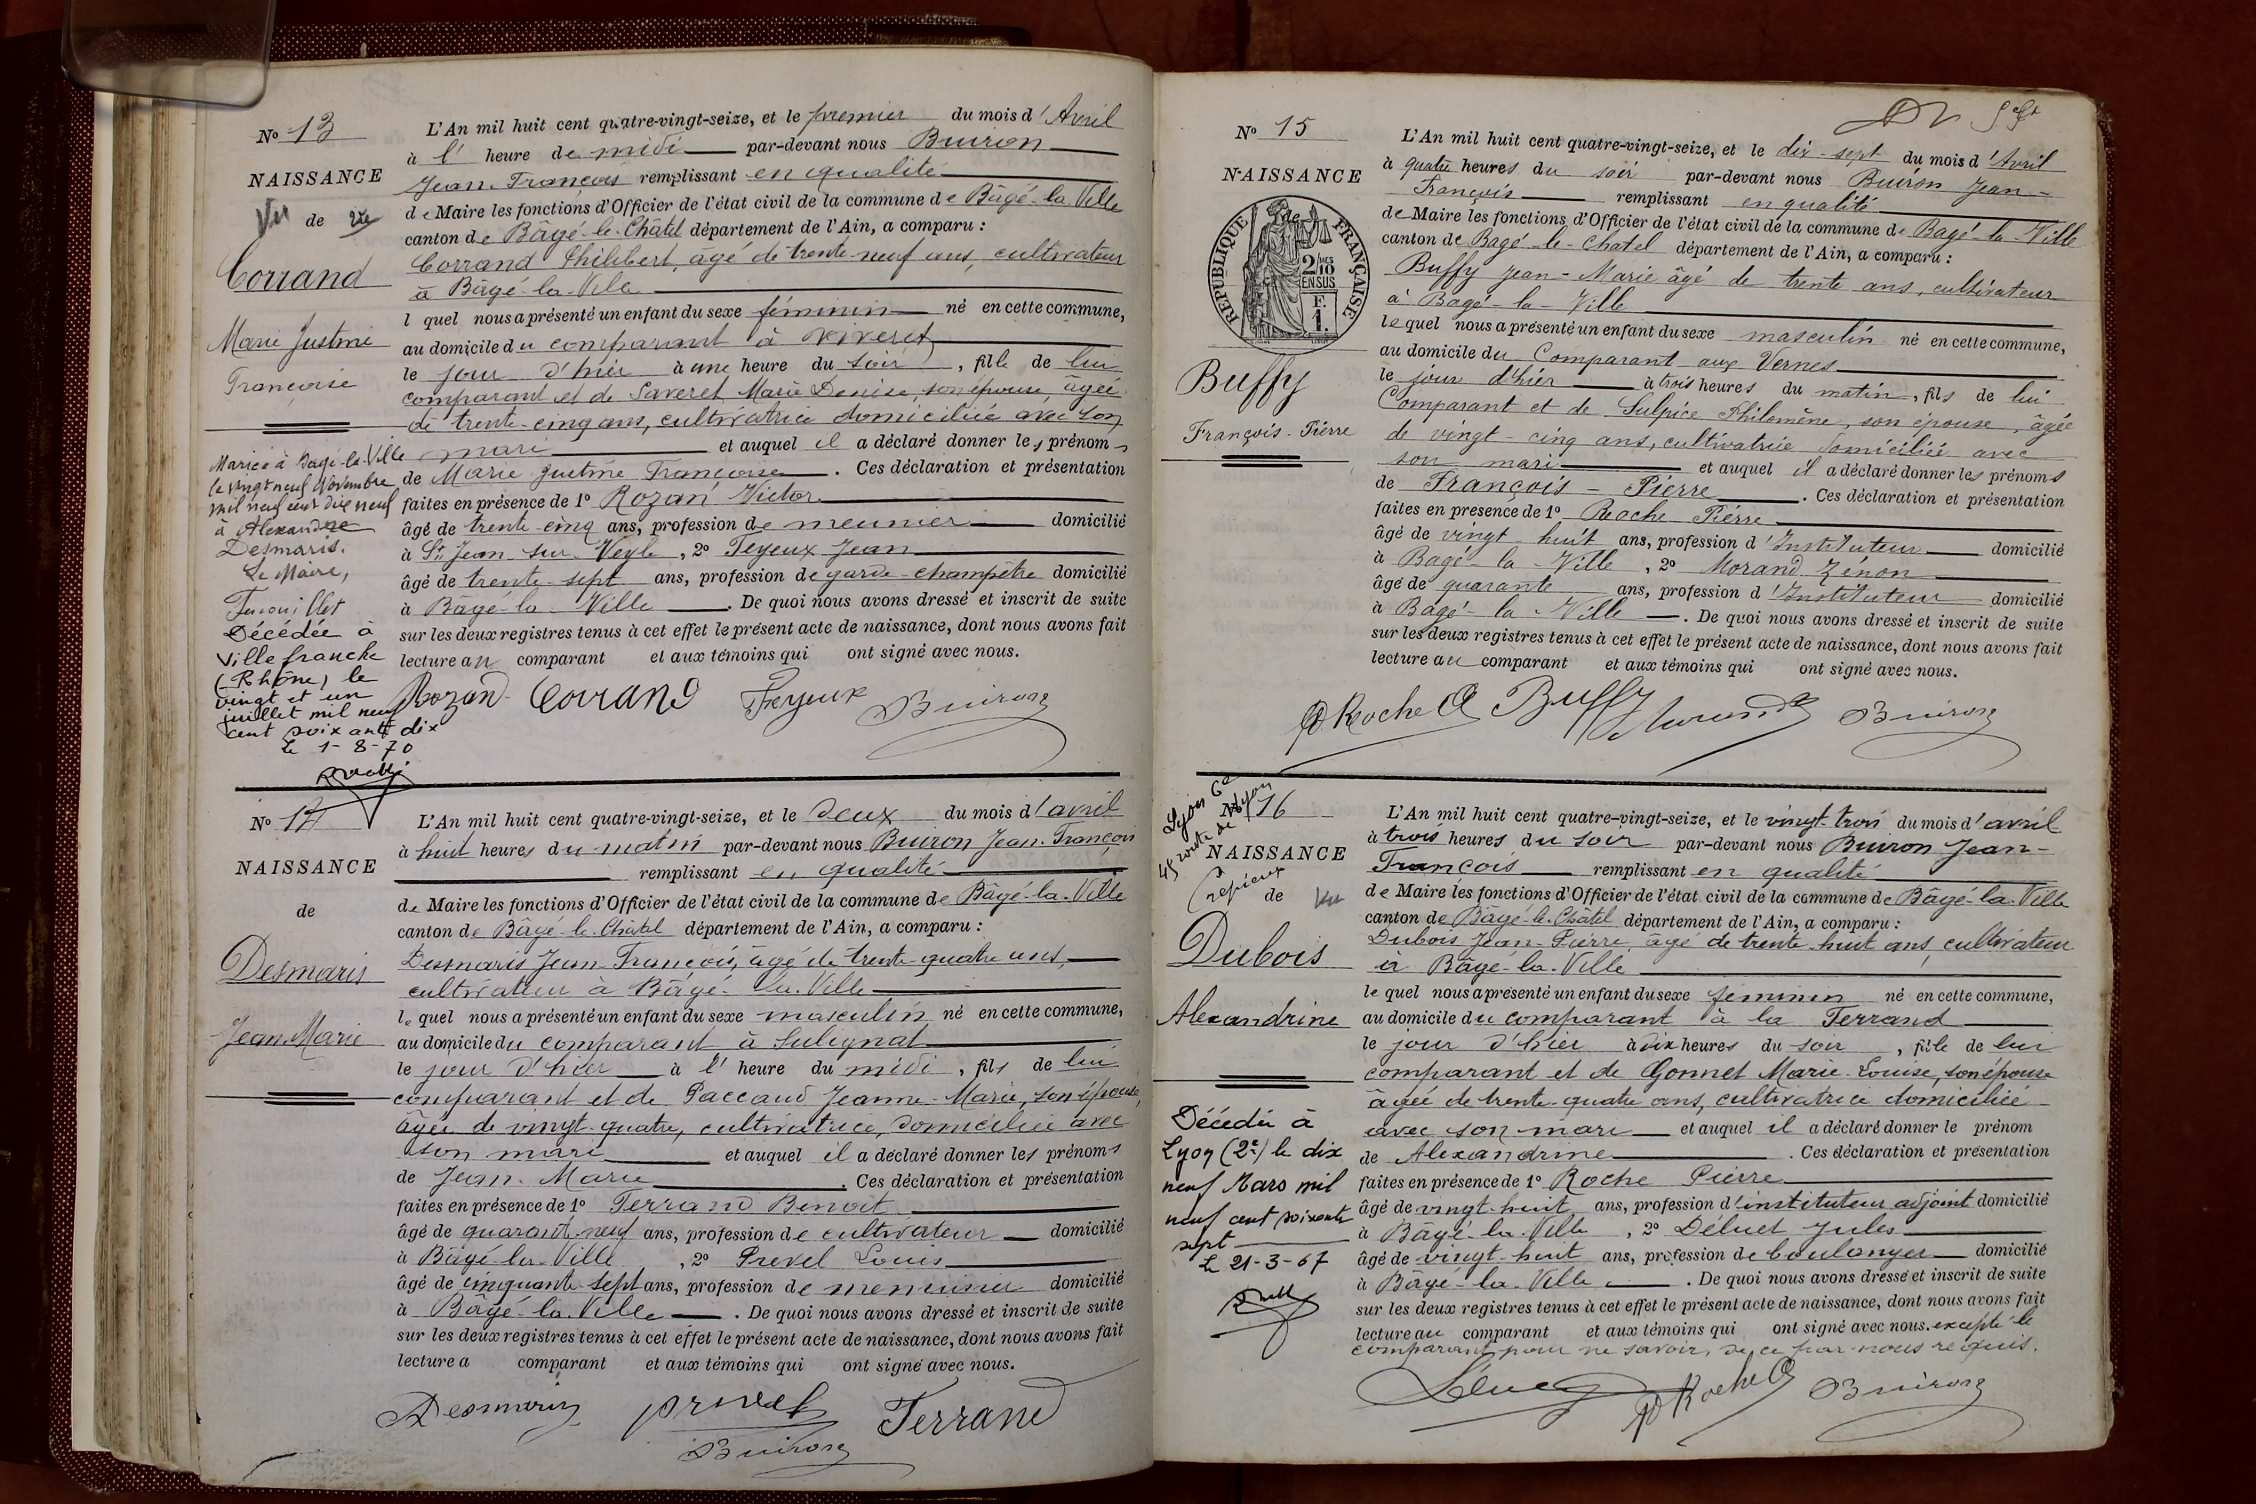 N° 13
NAISSANCE
de
Corrand
Marie Justine
Françoise
Mariée à Bagé-la-Ville
le vingt neuf Novembre
mil neuf cent dix neuf
à Alexandre
Desmaris.
Le Maire,
Décédée à
Villefranche
(Rhône) le
vingt et un
juillet mil neuf
cent soixante dix
Le 1-8-70
L'An mil huit cent quatre-vingt-seize, et le premier du mois d'Avril
à l' heure de midi par-devant nous Buiron
Jean-François remplissant en qualité
de Maire les fonctions d'Officier de l'état civil de la commune de Bâgé-la-Ville
canton de Bâgé-le-Châtel département de l'Ain, a comparu :
Corrand Philibert, agé de trente-neuf ans, cultivateur
à Bâgé-la-Ville
l quel nous a présenté un enfant du sexe féminin né en cette commune,
au domicile du comparant à
le jour d'hier à une heure du soir, fille de lui
comparant et de Saveret Marie Denise, son épouse, âgée
de trente-cinq ans, cultivatrice domiciliée avec son
mari et auquel il a déclaré donner les prénoms
de Marie Justine Françoise. Ces déclaration et présentation
faites en présence de 1° Rozan Victor
âgé de trente-cinq ans, profession de meunier domicilié
à St Jean-sur-Veyle, 2° Feyeux Jean
âgé de trente-sept ans, profession de garde-champêtre domicilié
à Bâgé-la-Ville. De quoi nous avons dressé et inscrit de suite
sur les deux registres tenus à cet effet le présent acte de naissance, dont nous avons fait
lecture au comparant et aux témoins qui ont signé avec nous.
Rozand Corrand Feyeux Buiron
N° 14
NAISSANCE
de
Desmaris
Jean Marie
L'An mil huit cent quatre-vingt-seize, et le deux du mois d'avril
à huit heures du matin par-devant nous Buiron Jean-François
remplissant en qualité
de Maire les fonctions d'Officier de l'état civil de la commune de Bâgé-la-Ville
canton de Bâgé-le-Châtel département de l'Ain, a comparu :
Desmaris Jean-François, âgé de trente-quatre ans,
cultivateur à Bâgé-la-Ville
le quel nous a présenté un enfant du sexe masculin né en cette commune,
au domicile du comparant à Sulignat
le jour d'hier à l' heure du midi, fils de lui
comparant et de Paccaud Jeanne-Marie, son épouse,
âgée de vingt-quatre, cultivatrice, domiciliée avec
son mari et auquel il a déclaré donner les prénoms
de Jean-Marie. Ces déclaration et présentation
faites en présence de 1° Ferrand Benoit
âgé de quarante-neuf ans, profession de cultivateur domicilié
à Bâgé-la-Ville, 2° Prevel Louis
âgé de cinquante-sept ans, profession de menuisier domicilié
à Bâgé-la-Ville. De quoi nous avons dressé et inscrit de suite
sur les deux registres tenus à cet effet le présent acte de naissance, dont nous avons fait
lecture a comparant et aux témoins qui ont signé avec nous.
Desmaris Prevel Ferrand
Buiron
N° 15
NAISSANCE
de
RÉPUBLIQUE FRANÇAISE
2/10 EN SUS
F. 1.
Buffy
François-Pierre
L'An mil huit cent quatre-vingt-seize, et le dix-sept du mois d'Avril
à quatre heures du soir par-devant nous Buiron Jean-
François remplissant en qualité
de Maire les fonctions d'Officier de l'état civil de la commune de Bagé-la-Ville
canton de Bagé-le-Chatel département de l'Ain, a comparu :
Buffy Jean-Marie âgé de trente ans, cultivateur
à Bagé-la-Ville
le quel nous a présenté un enfant du sexe masculin né en cette commune,
au domicile du Comparant aux Vernes
le jour d'hier à trois heures du matin, fils de lui
Comparant et de Sulpice Philomène, son épouse, âgée
de vingt-cinq ans, cultivatrice domiciliée avec
son mari et auquel il a déclaré donner les prénoms
de François-Pierre. Ces déclaration et présentation
faites en présence de 1° Roche Pierre
âgé de vingt huit ans, profession d'Instituteur domicilié
à Bagé-la-Ville, 2° Morand Zénon
âgé de quarante ans, profession d'Instituteur domicilié
à Bagé-la-Ville. De quoi nous avons dressé et inscrit de suite
sur les deux registres tenus à cet effet le présent acte de naissance, dont nous avons fait
lecture au comparant et aux témoins qui ont signé avec nous.
P Roche Buffy Morand Buiron
N° 16
NAISSANCE
de
Dubois
Alexandrine
Décédée à
Lyon (2e) le dix
neuf Mars mil
neuf cent soixante
sept
Le 21-3-67
L'An mil huit cent quatre-vingt-seize, et le vingt-trois du mois d'avril
à trois heures du soir par-devant nous Buiron Jean-
François remplissant en qualité
de Maire les fonctions d'Officier de l'état civil de la commune de Bâgé-la-Ville
canton de Bâgé-le-Châtel département de l'Ain, a comparu :
Dubois Jean-Pierre, âgé de trente-huit ans, cultivateur
à Bâgé-la-Ville
le quel nous a présenté un enfant du sexe féminin né en cette commune,
au domicile du comparant à la Ferrand
le jour d'hier à dix heures du soir, fille de lui
comparant et de Gonnet Marie-Louise, son épouse
âgée de trente-quatre ans, cultivatrice domiciliée
avec son mari et auquel il a déclaré donner le prénom
de Alexandrine. Ces déclaration et présentation
faites en présence de 1° Roche Pierre
âgé de vingt-huit ans, profession d'instituteur adjoint domicilié
à Bâgé-la-Ville, 2° Jules
âgé de vingt-huit ans, profession de boulanger domicilié
à Bâgé-la-Ville. De quoi nous avons dressé et inscrit de suite
sur les deux registres tenus à cet effet le présent acte de naissance, dont nous avons fait
lecture au comparant et aux témoins qui ont signé avec nous. excepté le
comparant pour ne savoir, de ce par nous requis.
P Roche Buiron